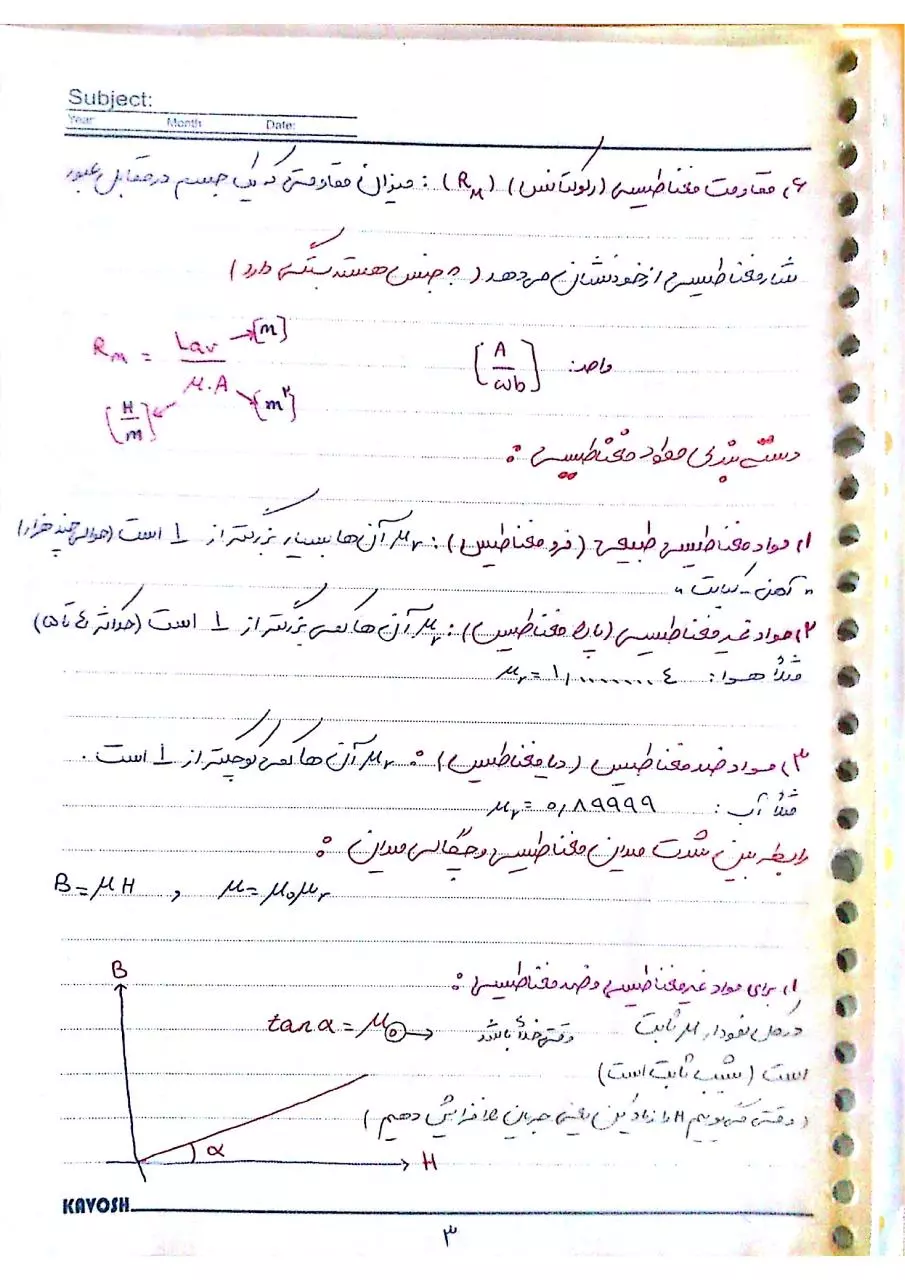 Subject:
Year: Month: Date:
۶) مقاومت مغناطیسی (رلوکتانس) (Rₘ) : میزان مقاومتی که یک جسم در مقابل عبور
شار مغناطیسی از خود نشان می دهد ( به جنس هسته بستگی دارد )
واحد: [A/wb] Rₘ = Lav/μ.A → [m] [m²] [H/m]
دسته بندی مواد مغناطیسی :
۱) مواد مغناطیسی طبیعی (فرو مغناطیس) : μr آن ها بسیار بزرگتر از 1 است (حوالی چند هزار)
" آهن - کبالت "
۲) مواد غیر مغناطیسی (پارا مغناطیس) : μr آن ها کمی بزرگتر از 1 است (حداکثر ٤ تا ۵)
مثلاً هوا : μr = ۱,۰۰۰۰۰۰۰۰۰٤
۳) مواد ضد مغناطیس (دیا مغناطیس) : μr آن ها کمی کوچکتر از 1 است .
مثلاً آب : μr = ۰,۸۹۹۹۹
رابطه بین شدت میدان مغناطیسی و چگالی میدان :
B = μH , μ = μ₀μr
۱) برای مواد غیر مغناطیسی و ضد مغناطیسی :
در کل نمودار μ ثابت
است (شیب ثابت است)
( وقتی می گوییم H را زیاد کن یعنی جریان را افزایش دهیم )
B
tan α = μ₀ → وقتی خلأ باشد
α
H
KAVOSH
۳